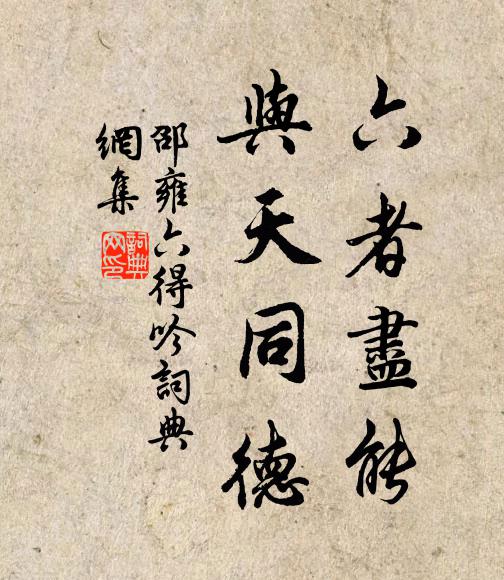 六者盡能
與天同德
邵雍六得吟詞典
網集
詞典
网印